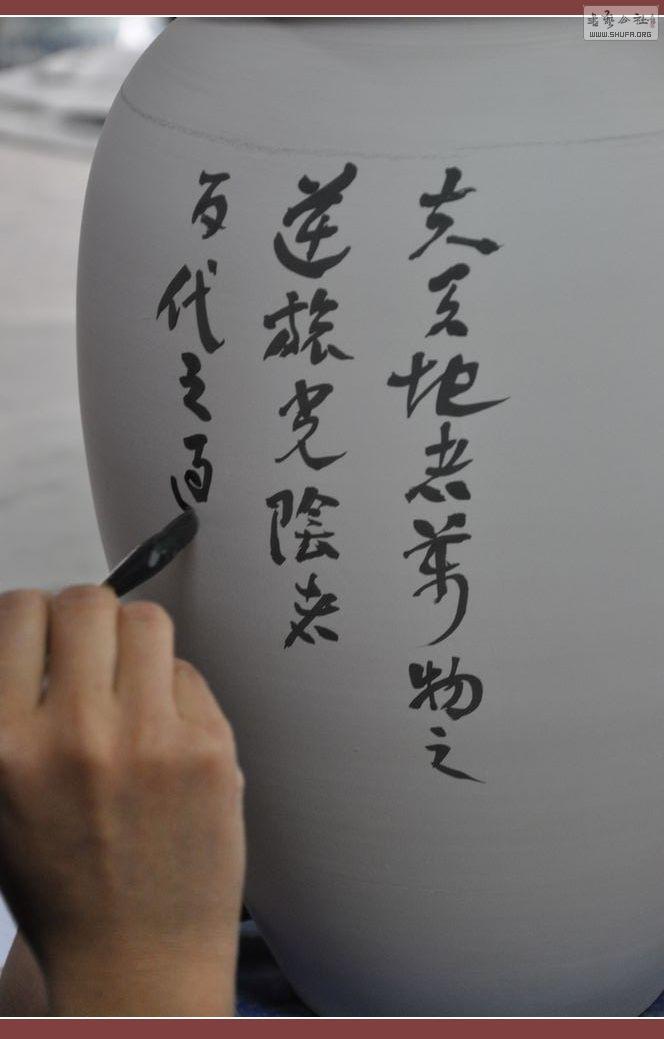 夫天地者萬物之
逆旅光陰者
百代之過
書藝公社
WWW.SHUFA.ORG